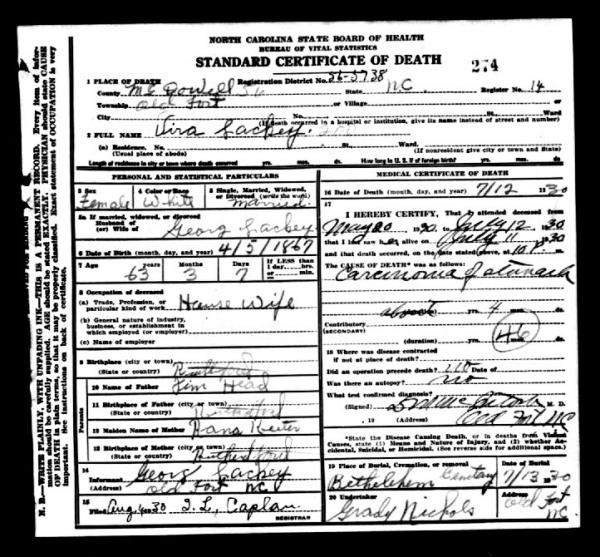 NORTH CAROLINA STATE BOARD OF HEALTH
BUREAU OF VITAL STATISTICS
STANDARD CERTIFICATE OF DEATH
274
1 PLACE OF DEATH
Registration District No. 56-5738
County
State N.C. Register No. 14
Township Old Fort or Village or
City No. St. Ward
(If death occurred in a hospital or institution, give its name instead of street and number)
2 FULL NAME Vira Lackey
(a) Residence. No. St. Ward
(Usual place of abode) (If nonresident give city or town and State)
Length of residence in city or town where death occurred yrs. mos. ds. How long in U. S. if of foreign birth? yrs. mos. ds.
PERSONAL AND STATISTICAL PARTICULARS
3 Sex 4 Color or Race 5 Single, Married, Widowed, or Divorced (write the word)
Female White Married
5a If married, widowed, or divorced
Husband of
(or) Wife of Georg Lackey
6 Date of Birth (month, day, and year) 4/5/1867
7 Age Years Months Days If LESS than
63 3 7 1 day, hrs.
or min.
8 Occupation of deceased
(a) Trade, Profession, or
particular kind of work House Wife
(b) General nature of industry,
business, or establishment in
which employed (or employer)
(c) Name of employer
9 Birthplace (city or town)
(State or country)
Parents
10 Name of Father Jim Head
11 Birthplace of Father (city or town)
(State or country)
12 Maiden Name of Mother
13 Birthplace of Mother (city or town)
(State or country) Rutherford
14
Informant Georg Lackey
(Address) Old Fort NC
15
Filed Aug 4 30 I. L. Caplan
REGISTRAR
MEDICAL CERTIFICATE OF DEATH
16 Date of Death (month, day, and year) 7/12 1930
17
I HEREBY CERTIFY, That I attended deceased from
May 20 1930, to July 12 1930
that I last saw her alive on July 11 1930
and that death occurred, on the date stated above, at 10
The CAUSE OF DEATH* was as follows:
Carcinoma of stomach
about yrs. 4 mos. ds.
Contributory
(SECONDARY)
46
(duration) yrs. mos. ds.
18 Where was disease contracted
if not at place of death?
Did an operation precede death? no
Was there an autopsy? no
What test confirmed diagnosis?
(Signed) M. D.
, 19 (Address) Old Fort NC
*State the Disease Causing Death, or in deaths from Violent
Causes, state (1) Means and Nature of Injury, and (2) whether Accidental,
Suicidal, or Homicidal. (See reverse side for additional space).
19 Place of Burial, Cremation, or removal Date of Burial
Bethlehem Cemetary 7/13 1930
20 Undertaker Address
Grady Nichols Old Fort
NC.
N. B.—WRITE PLAINLY, WITH UNFADING INK—THIS IS A PERMANENT RECORD. Every item of information
should be carefully supplied. AGE should be stated EXACTLY. PHYSICIAN should state CAUSE
OF DEATH in plain terms, so that it may be properly classified. Exact statement of OCCUPATION is very
important. See instructions on back of certificate.